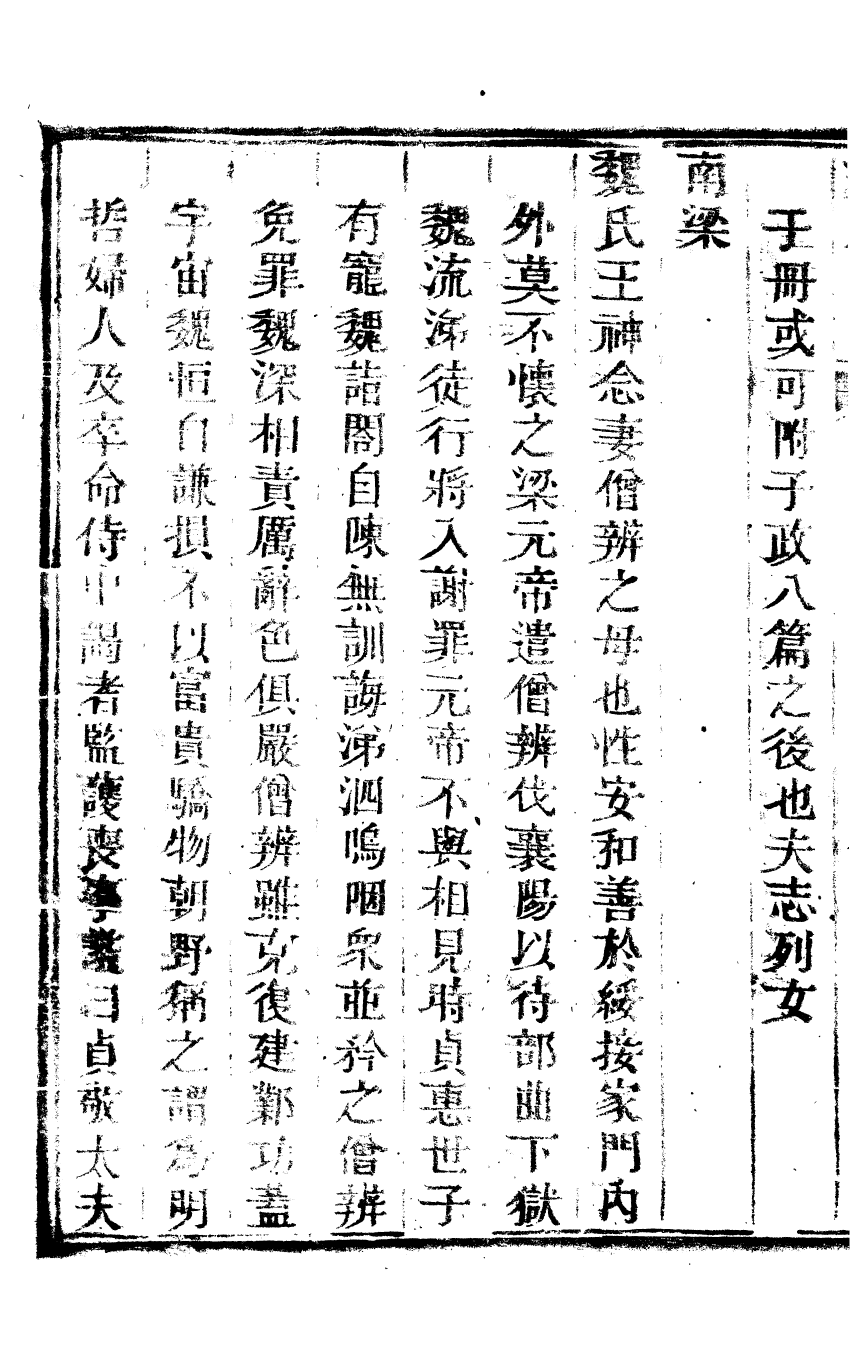 于冊或可附子政八篇之後也夫志列女
南梁
魏氏王神念妻僧辨之母也性安和善於綏接家門内
外莫不懷之梁元帝遣僧辨伐襄陽以待部曲下獄
魏流涕徒行將入謝罪元帝不與相見時貞惠世子
有寵魏詣閤自陳無訓誨涕泗嗚咽衆並矜之僧辨
免罪魏深相責厲辭色俱嚴僧辨雖克復建鄴功蓋
宇宙魏恒自謙損不以富貴驕物朝野稱之謂為明
哲婦人及卒命侍中謁者監護喪事謚曰貞敬太夫